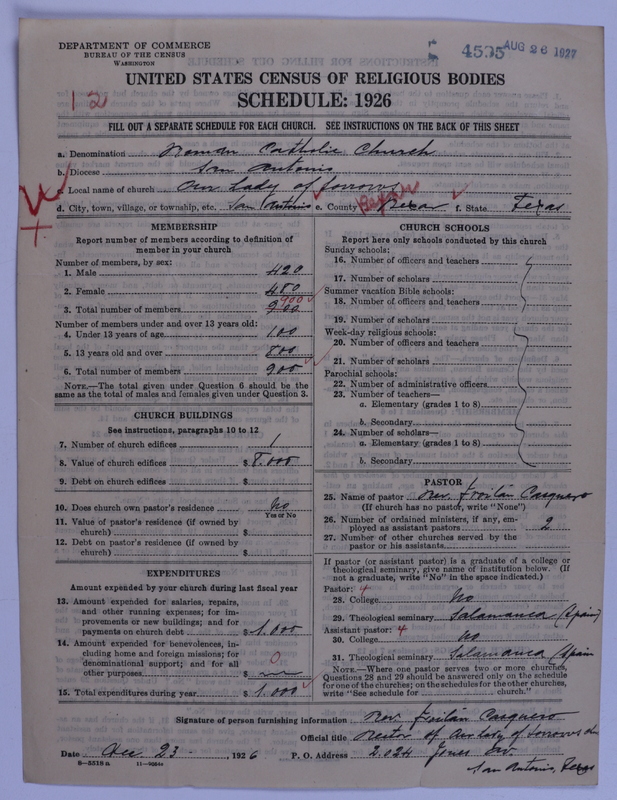 DEPARTMENT OF COMMERCE
BUREAU OF THE CENSUS
WASHINGTON
4595 AUG 26 1927
UNITED STATES CENSUS OF RELIGIOUS BODIES
SCHEDULE: 1926
12
FILL OUT A SEPARATE SCHEDULE FOR EACH CHURCH. SEE INSTRUCTIONS ON THE BACK OF THIS SHEET
a. Denomination Roman Catholic Church
b. Diocese San Antonio
c. Local name of church Our Lady of Sorrows
d. City, town, village, or township, etc. San Antonio e. County Bexar f. State Texas
MEMBERSHIP
Report number of members according to definition of
member in your church
Number of members, by sex:
1. Male 420
2. Female 480
3. Total number of members 900 900
Number of members under and over 13 years old:
4. Under 13 years of age 100
5. 13 years old and over 800
6. Total number of members 900
NOTE.—The total given under Question 6 should be
same as the total of males and females given under Question 3.
CHURCH BUILDINGS
See instructions, paragraphs 10 to 12
7. Number of church edifices 1
8. Value of church edifices $8.000
9. Debt on church edifices $
10. Does church own pastor's residence No
Yes or No
11. Value of pastor's residence (if owned by
church) $
12. Debt on pastor's residence (if owned by
church) $
EXPENDITURES
Amount expended by your church during last fiscal year
13. Amount expended for salaries, repairs,
and other running expenses; for im-
provements or new buildings; and for
payments on church debt $1.000
14. Amount expended for benevolences, in-
cluding home and foreign missions; for
denominational support; and for all
other purposes 0 $
15. Total expenditures during year $1.000
CHURCH SCHOOLS
Report here only schools conducted by this church
Sunday schools:
16. Number of officers and teachers
17. Number of scholars
Summer vacation Bible schools:
18. Number of officers and teachers
19. Number of scholars
Week-day religious schools:
20. Number of officers and teachers
21. Number of scholars
Parochial schools:
22. Number of administrative officers
23. Number of teachers—
a. Elementary (grades 1 to 8)
b. Secondary
24. Number of scholars—
a. Elementary (grades 1 to 8)
b. Secondary
PASTOR
25. Name of pastor Rev. Froilán Casquero
(If church has no pastor, write "None")
26. Number of ordained ministers, if any, em-
ployed as assistant pastors 2
27. Number of other churches served by the
pastor or his assistants
If pastor (or assistant pastor) is a graduate of a college or
theological seminary, give name of institution below. (If
not a graduate, write "No" in the space indicated.)
Pastor: 4
28. College No
29. Theological seminary Salamanca (Spain)
Assistant pastor: 4
30. College no
31. Theological seminary Salamanca (Spain
NOTE.—Where one pastor serves two or more churches,
Questions 28 and 29 should be answered only on the schedule
for one of the churches; on the schedules for the other churches,
write "See schedule for church."
Signature of person furnishing information Rev. Froilán Casquero
Official title Rector of Our Lady of Sorrows
Date Dec 23 , 1926 P. O. Address 2.024 Jones Av
San Antonio, Texas
8—5518a 11—9024